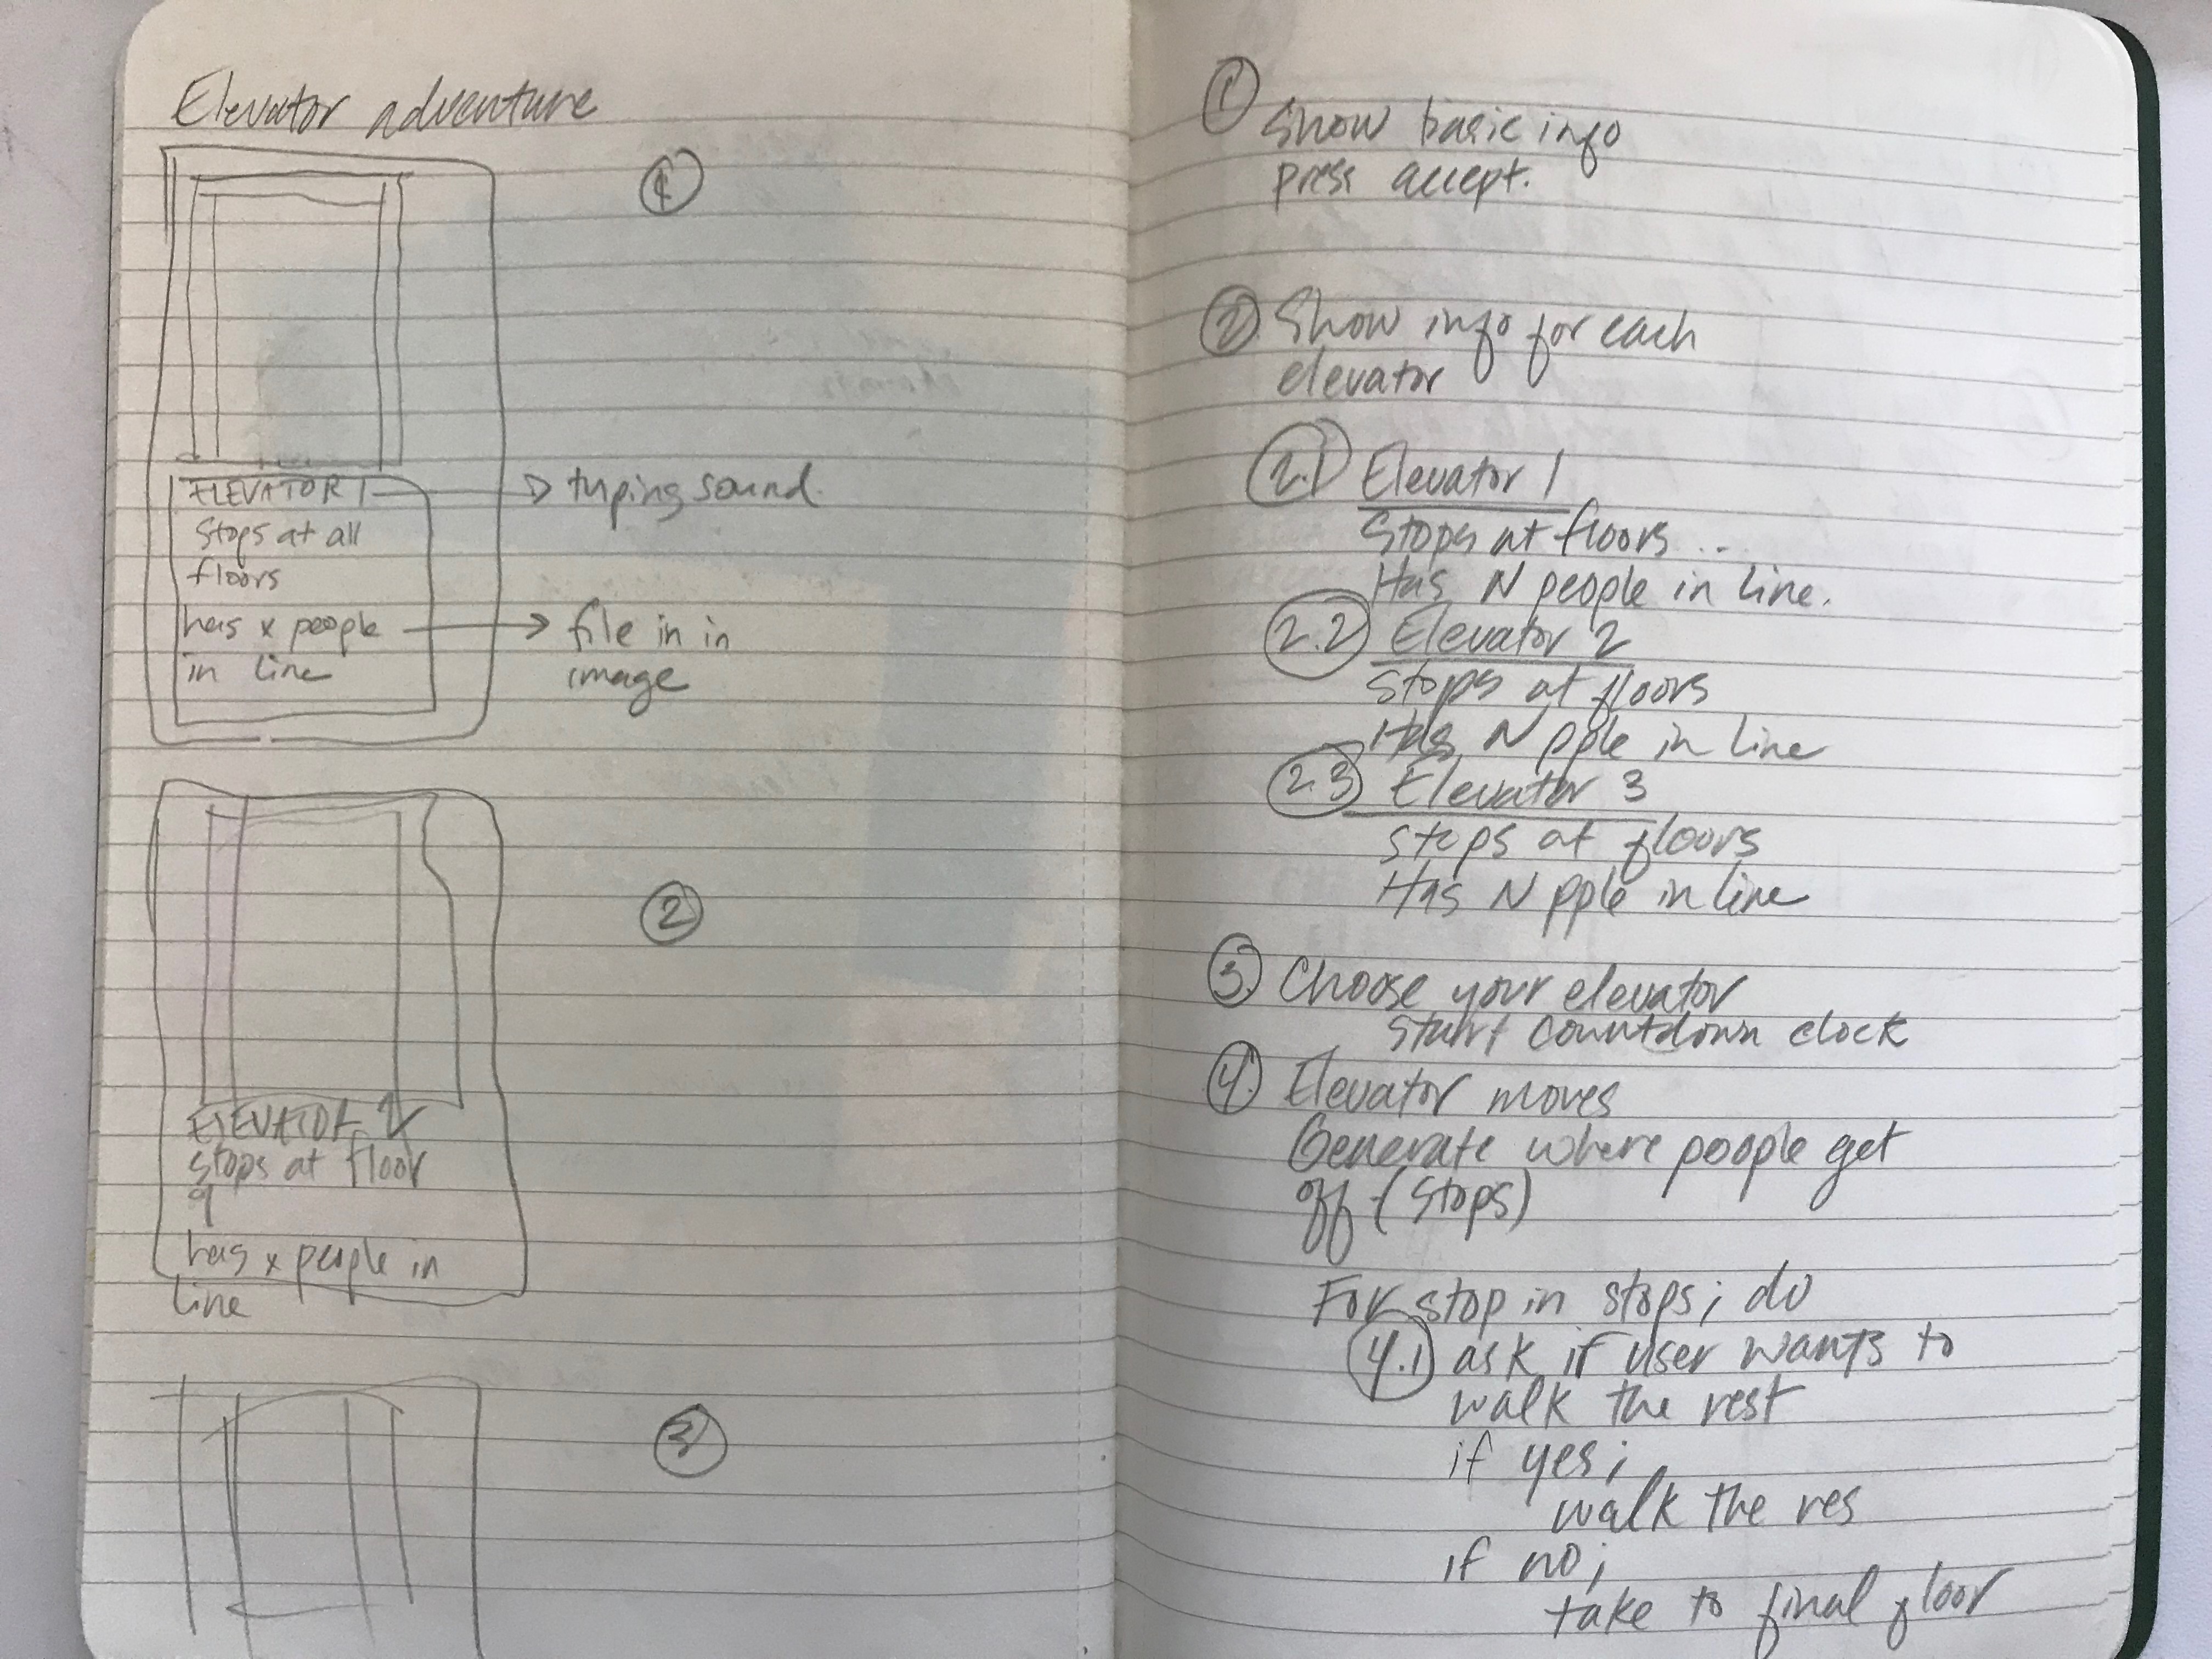 Elevator adventure
1
ELEVATOR 1
typing sound
Stops at all
floors
has x people
file in in
in line
image
2
ELEVATOR 2
stops at floor
9
has x people in
line
3
1
Show basic info
press accept.
2. Show info for each
elevator
2.1 Elevator 1
Stops at floors ..
Has N people in line.
2.2 Elevator 2
Stops at floors
Has N pple in line
2.3 Elevator 3
stops at floors
Has N pple in line
3. Choose your elevator
start countdown clock
4. Elevator moves
Generate where people get
off (stops)
For stop in stops; do
4.1 ask if user wants to
walk the rest
if yes;
walk the res
if no;
take to final floor